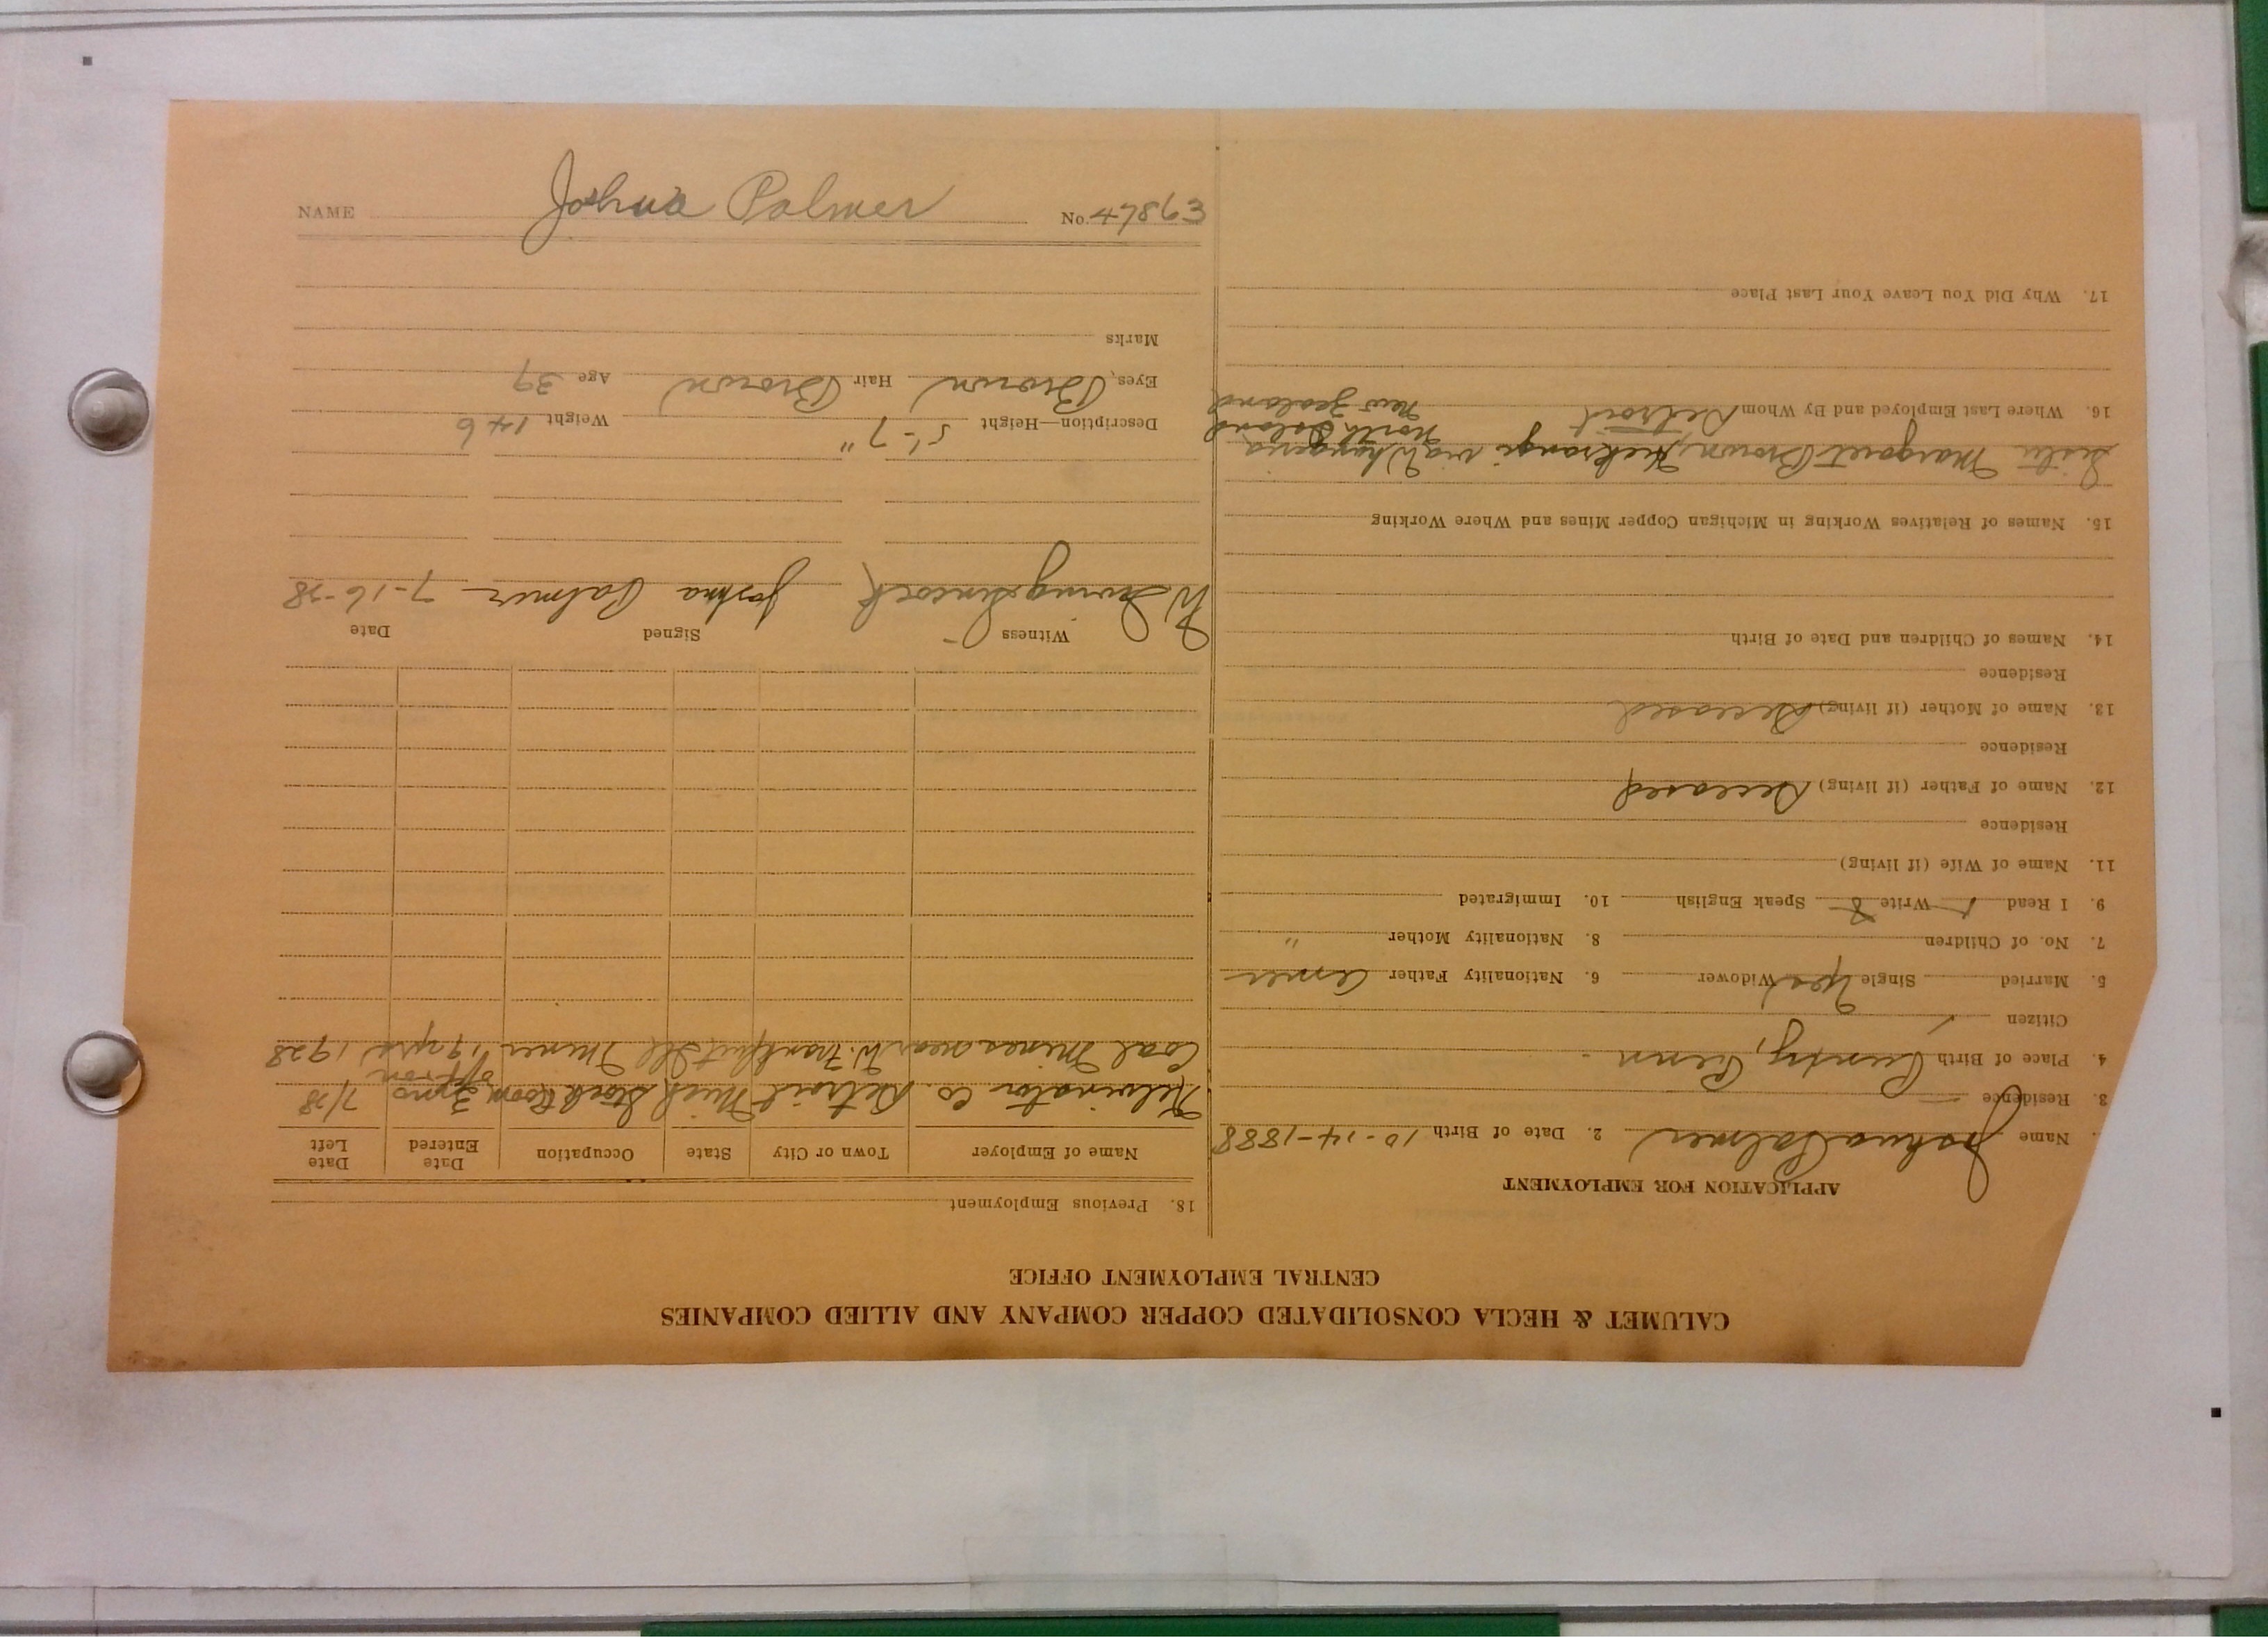 NAME Joshua Palmer No. 47863
CALUMET & HECLA CONSOLIDATED COPPER COMPANY AND ALLIED COMPANIES
CENTRAL EMPLOYMENT OFFICE
APPLICATION FOR EMPLOYMENT
Name Joshua Palmer 2. Date of Birth 10-14-1888
3. Residence
4. Place of Birth Pundy, Penn
Citizen
5. Married Single Yes Widower 6. Nationality Father Amer
7. No. of Children 8. Nationality Mother "
9. I Read Write Speak English 10. Immigrated
11. Name of Wife (if living)
Residence
12. Name of Father (if living) Deceased
Residence
13. Name of Mother (if living) Deceased
Residence
14. Names of Children and Date of Birth
15. Names of Relatives Working in Michigan Copper Mines and Where Working
Sister Margaret Brown, Hickrangi via Whangerra
North Island
New Zealand
16. Where Last Employed and By Whom Detroit
17. Why Did You Leave Your Last Place
18. Previous Employment
Name of Employer Town or City State Occupation Date Entered Date Left
Kelvinator Co. Detroit Mich Stock Room 3 yrs off & on 7/28
Coal Mines near W. Frankfurt Ill Miner 19 yrs 1928
Witness Signed Date
W Irving Sincock Joshua Palmer 7-16-28
Description—Height 5'-7" Weight 146
Eyes, Brown Hair Brown Age 39
Marks